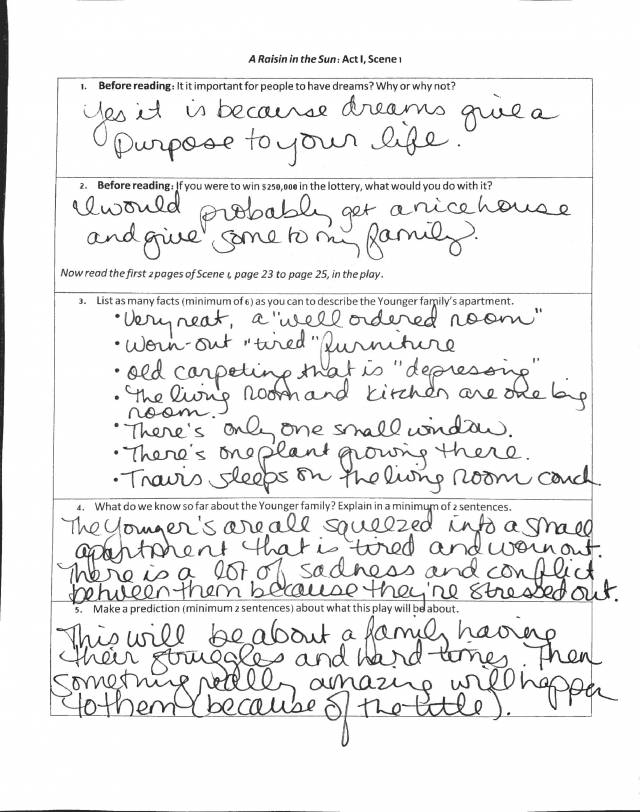 A Raisin in the Sun: Act I, Scene 1
1. Before reading: It it important for people to have dreams? Why or why not?
Yes it is because dreams give a
purpose to your life.
2. Before reading: If you were to win $250,000 in the lottery, what would you do with it?
I would probably get a nice house
and give some to my family.
Now read the first 2 pages of Scene 1, page 23 to page 25, in the play.
3. List as many facts (minimum of 6) as you can to describe the Younger family's apartment.
• Very neat, a "well ordered room"
• Worn-out "tired" furniture
• old carpeting that is "depressing"
• The living room and kitchen are one big
room.
• There's only one small window.
• There's one plant growing there.
• Travis sleeps on the living room couch
4. What do we know so far about the Younger family? Explain in a minimum of 2 sentences.
The Younger's are all squeezed into a small
apartment that is tired and worn out.
There is a lot of sadness and conflict
between them because they're stressed out.
5. Make a prediction (minimum 2 sentences) about what this play will be about.
This will be about a family having
their struggles and hard times. Then
something really amazing will happen
to them (because of the title).